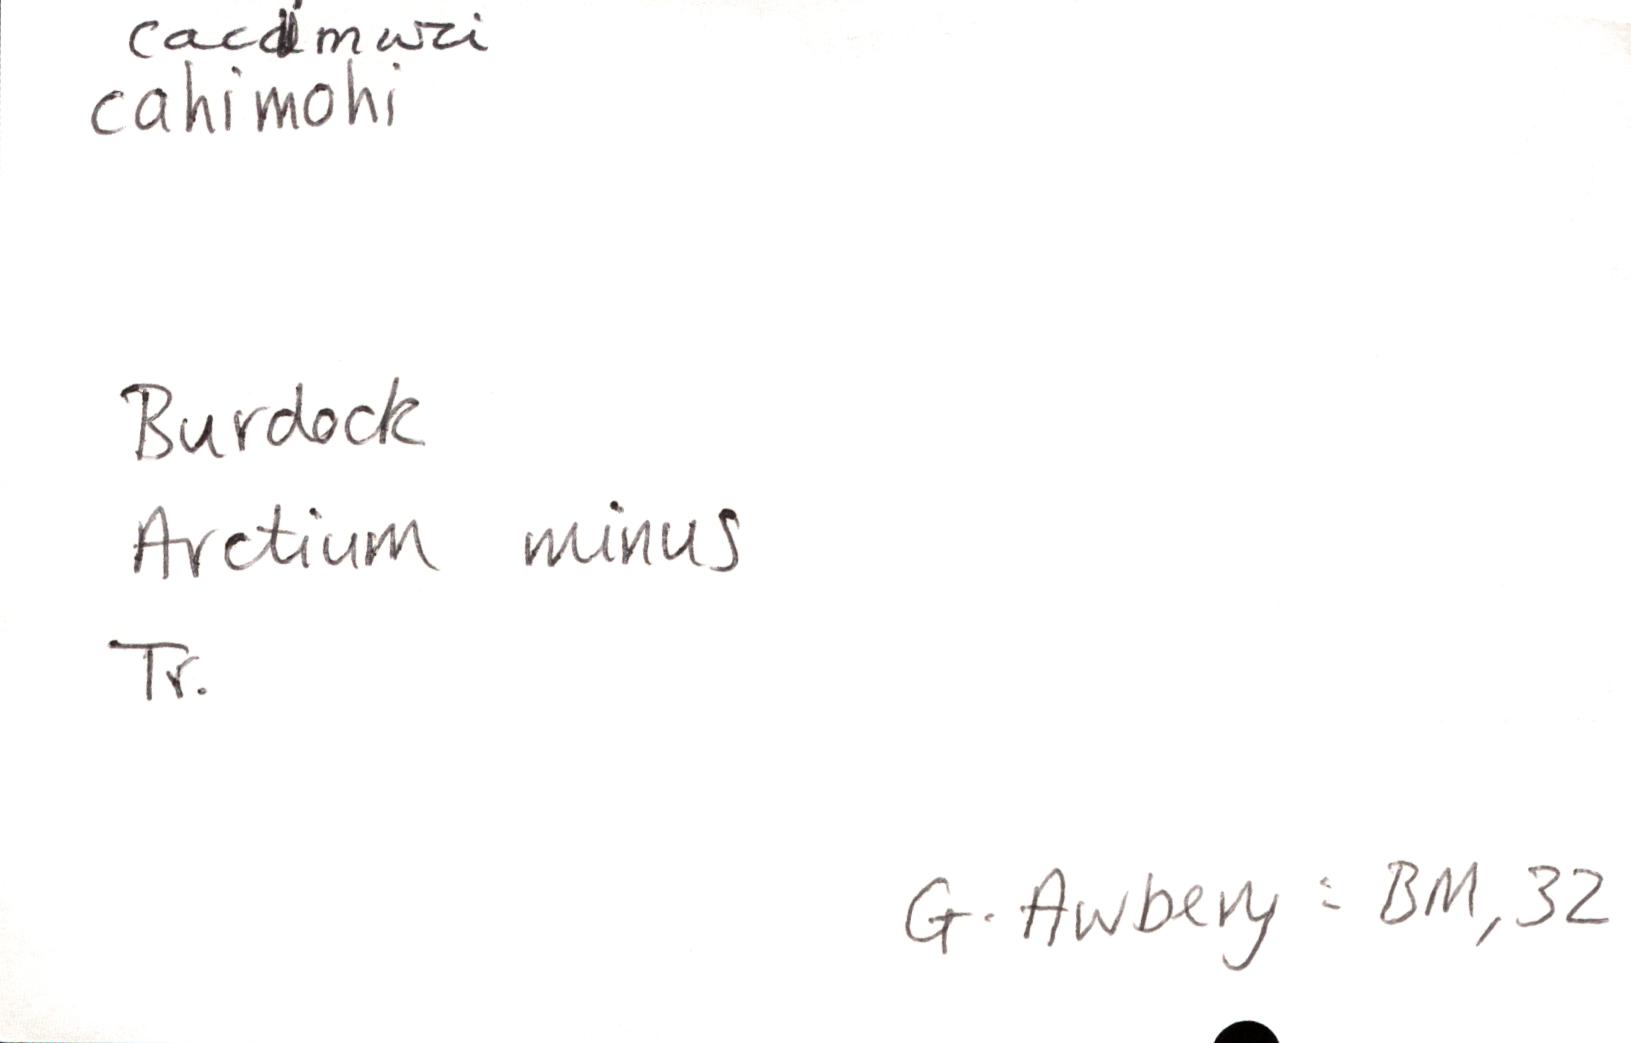 cahimohi
Burdock
Arctium minus
Tr.
G. Awbery : BM, 32